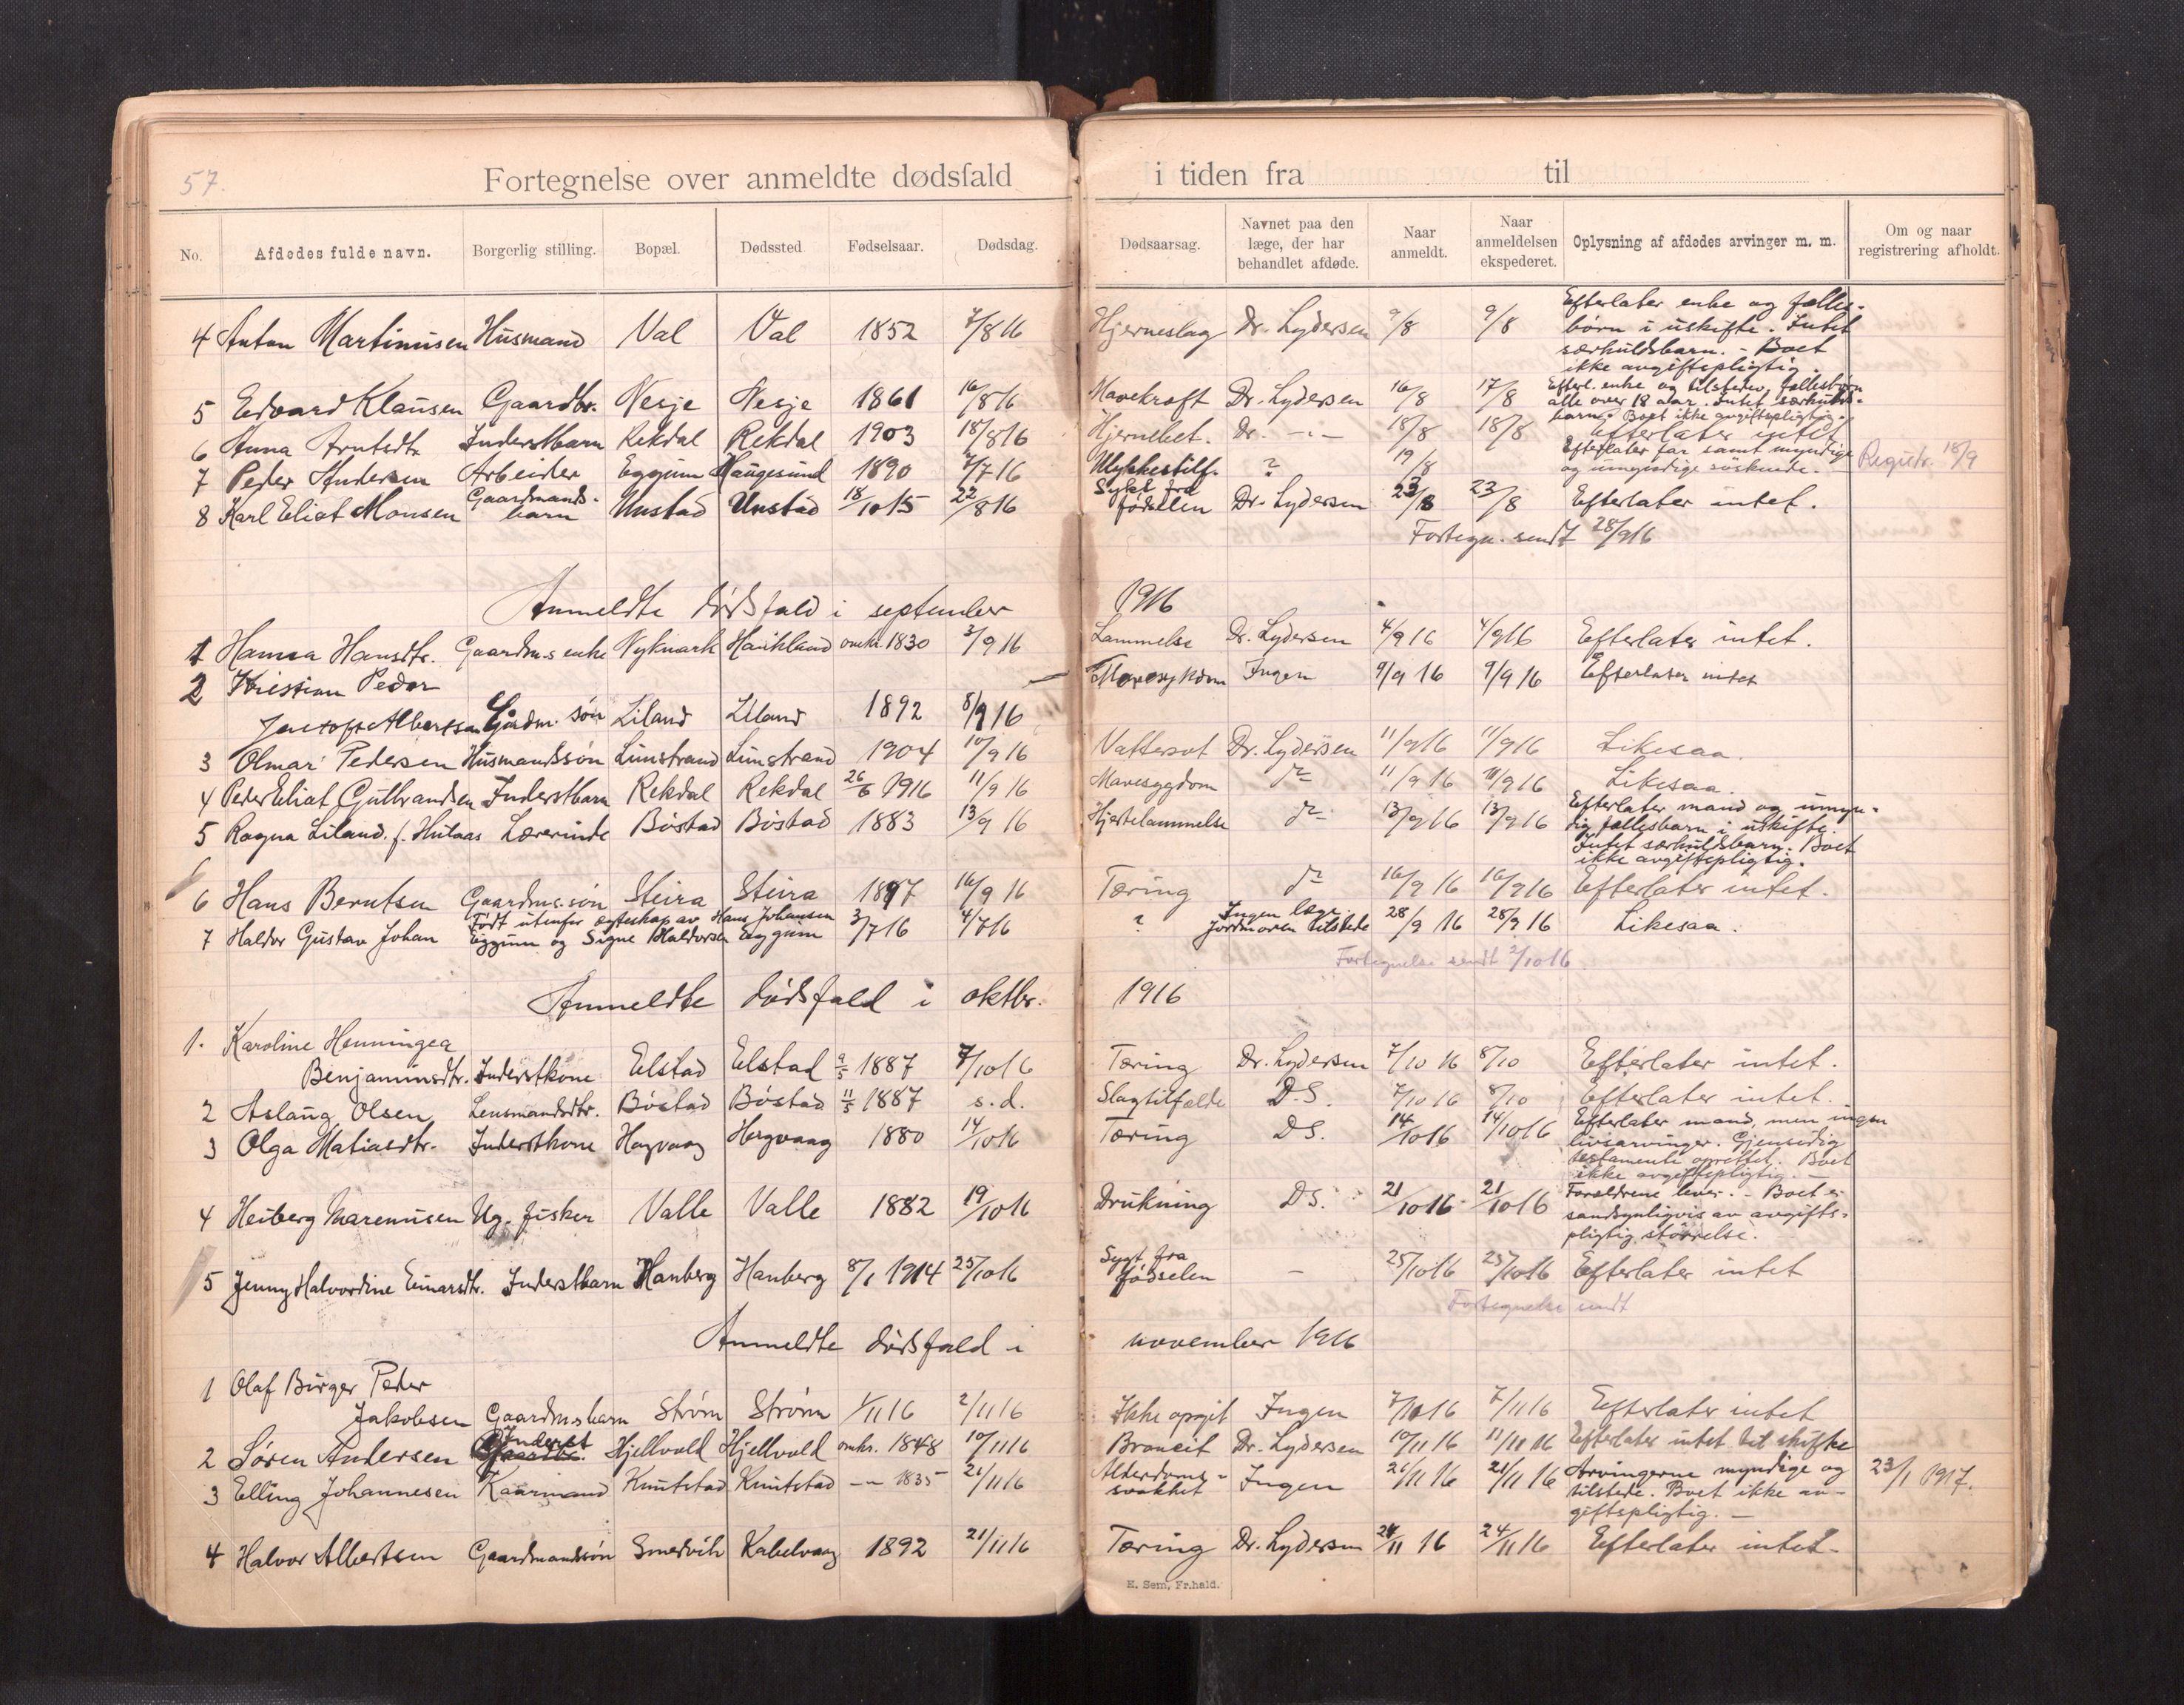 57.
Fortegnelse over anmeldte dødsfald i tiden fra til
No. Afdødes fulde navn. Borgerlig stilling. Bopæl. Dødssted Fødselsaar. Dødsdag. Dødsaarsag. Navnet paa den læge, der har behandlet afdøde. Naar anmeldt. Naar anmeldelsen ekspederet. Oplysning af afdødes arvinger m. m. Om og naar registrering afholdt.
4 Anton Martinusen Husmand Val Val 1852 7/8 16 Hjerneslag Dr. Lydersen 9/8 9/8 Efterlater enke og fælles-
børn i uskifte. Intet
særkuldsbarn. - Boet
ikke avgiftspligtig.
5 Edvard Klausen Gaardbr. Nesje Nesje 1861 16/8 16 Mavekræft Dr. Lydersen 16/8 17/8 Efterl. enke og tilstedev. fællesbørn
alle over 18 aar. Intet særkulds-
barn. Boet ikke avgiftspligtig.
6 Anna Arntsdtr Inderstbarn Rekdal Rekdal 1903 18/8 16 Hjernebet. Dr. -"- 18/8 18/8 Efterlater intet
7 Peder Andersen Arbeider Eggum Haugesund 1890 7/7 16 Ulykkestilf. ? 19/8 Efterlater far samt myndige
og umyndige søskende. Registr. 18/9
8 Karl Eliot Monsen Gaardmands-
barn Unstad Unstad 18/10 15 22/8 16 Sykt fra
fødselen Dr. Lydersen 23/8 23/8 Efterlater intet.
Fortegn. sendt 28/9 16
Anmeldte dødsfald i september 1916
1 Hansa Hansdtr. Gaardm.s enke Nykmark Haukland omkr. 1830 3/9 16 Lammelse Dr. Lydersen 4/9 16 4/9 16 Efterlater intet.
2 Kristian Peder
Albertsen Gaardm. søn Liland Liland 1892 8/9 16 Mavesykdom Ingen 9/9 16 9/9 16 Efterlater intet
3 Olmar Pedersen Husmandssøn Limstrand Limstrand 1904 10/9 16 Vattersot Dr. Lydersen 11/9 16 11/9 16 Likesaa.
4 Peder Eliat Gulbrandsen Inderstbarn Rekdal Rekdal 26/6 1916 11/9 16 Mavesygdom do 11/9 16 11/9 16 Likesaa.
5 Ragna Liland f. Hulaas Lærerinde Bøstad Bøstad 1883 13/9 16 Hjertelammelse do 13/9 16 13/9 16 Efterlater mand og umyn-
dig fællesbarn i uskifte.
Intet særkuldsbarn. Boet
ikke avgiftspligtig.
6 Hans Berntsen Gaardm.s søn Steira Steira 1897 16/9 16 Tæring do 16/9 16 16/9 16 Efterlater intet.
7 Haldor Gustav Johan Født utenfor egteskap av Hans Johansen
Eggum og Signe Haldorsen Eggum 3/7 16 4/7 16 ? Ingen læge.
Jordmoren tilstede 28/9 16 28/9 16 Likesaa.
Fortegnelse sendt 2/10 16
Anmeldte dødsfald i oktbr. 1916
1. Karoline Henningea
Benjaminsdtr. Inderstkone Elstad Elstad 9/5 1887 7/10 16 Tæring Dr. Lydersen 7/10 16 8/10 Efterlater intet.
2 Aslaug Olsen Lensmandsdtr. Bøstad Bøstad 11/5 1887 s.d. Slagtilfælde D.S. 7/10 16 8/10 Efterlater intet.
3 Olga Matiasdtr. Inderstkone Hagvaag Hagvaag 1880 14/10 16 Tæring DS. 14/10 16 14/10 16 Efterlater mand, men ingen
livsarvinger. Gjensidig
testamente oprettet. Boet
ikke avgiftspligtig. -
4 Heiberg Marenusen Ug. fisker Valle Valle 1882 19/10 16 Drukning DS. 21/10 16 21/10 16 Forældrene lever. - Boet er
sandsynligvis av avgifts-
pligtig størrelse.
5 Jenny Halvordine Einarsdtr. Inderstbarn Hanberg Hanberg 8/1 1914 25/10 16 Sygt fra
fødselen - 25/10 16 25/10 16 Efterlater intet
Fortegnelse sendt
Anmeldte dødsfald i november 1916
1 Olaf Birger Peder
Jakobsen Gaardm.sbarn Strøm Strøm 1/11 16 2/11 16 Ikke opgit Ingen 7/11 16 7/11 16 Efterlater intet
2 Søren Andersen Inderst Hjellvold Hjellvold omkr. 1848 10/11 16 Broncit Dr. Lydersen 10/11 16 11/11 16 Efterlater intet til skifte
3 Elling Johannesen Kaarmand Knutstad Knutstad -"- 1835 21/11 16 Alderdoms-
svakhet Ingen 21/11 16 21/11 16 Arvingerne myndige og
tilstede. Boet ikke av-
giftspligtig. - 23/1 1917.
4 Halvor Albertsen Gaardmandssøn Smedvik Kabelvaag 1892 21/11 16 Tæring Dr. Lydersen 24/11 16 24/11 16 Efterlater intet-
E. Sem, Fr.hald.